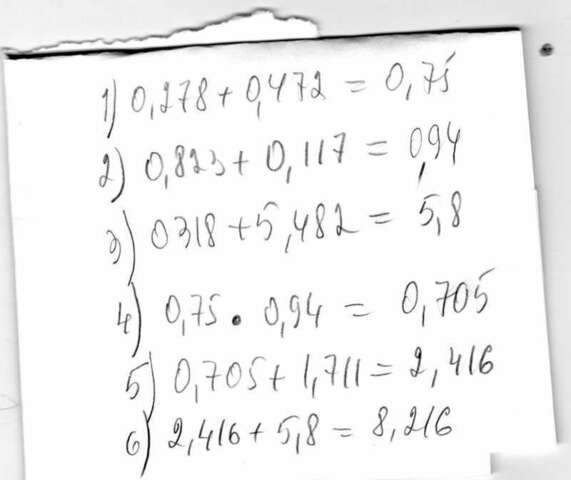 1) 0,278 + 0,472 = 0,75
2) 0,823 + 0,117 = 0,94
3) 0318 + 5,482 = 5,8
4) 0,75 . 0,94 = 0,705
5) 0,705 + 1,711 = 2,416
6) 2,416 + 5,8 = 8,216